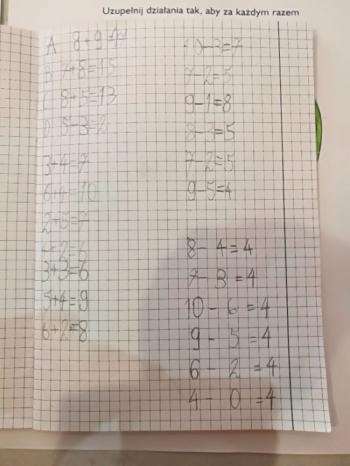 Uzupełnij działania tak, aby za każdym razem
A 8+9=17
B 7+8=15
C 8+5=13
D 5-3=2
3+4=7
6+4=10
2+5=7
4+2=6
3+3=6
5+4=9
6+2=8
10-3=7
7-2=5
9-1=8
8-3=5
7-2=5
9-5=4
8-4=4
7-3=4
10-6=4
9-5=4
6-2=4
4-0=4